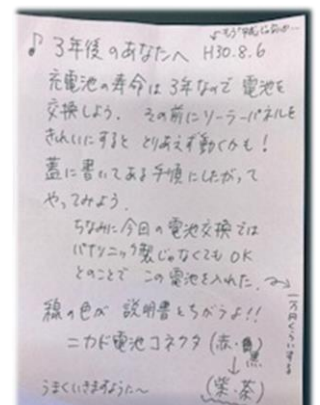 ♪ もう平成じゃないか…
♪ 3年後のあなたへ H30.8.6
充電池の寿命は3年なので 電池を
交換しよう. その前にソーラーパネルを
きれいにすると とりあえず動くかも!
蓋に書いてある手順にしたがって
やってみよう.
ちなみに今日の電池交換では
パナソニック製じゃなくてもOK
とのことで この電池を入れた.
一万円くらいする
線の色が 説明書とちがうよ!!
ニカド電池コネクタ (赤・黒)
↓
(紫・茶)
うまくいきますように〜